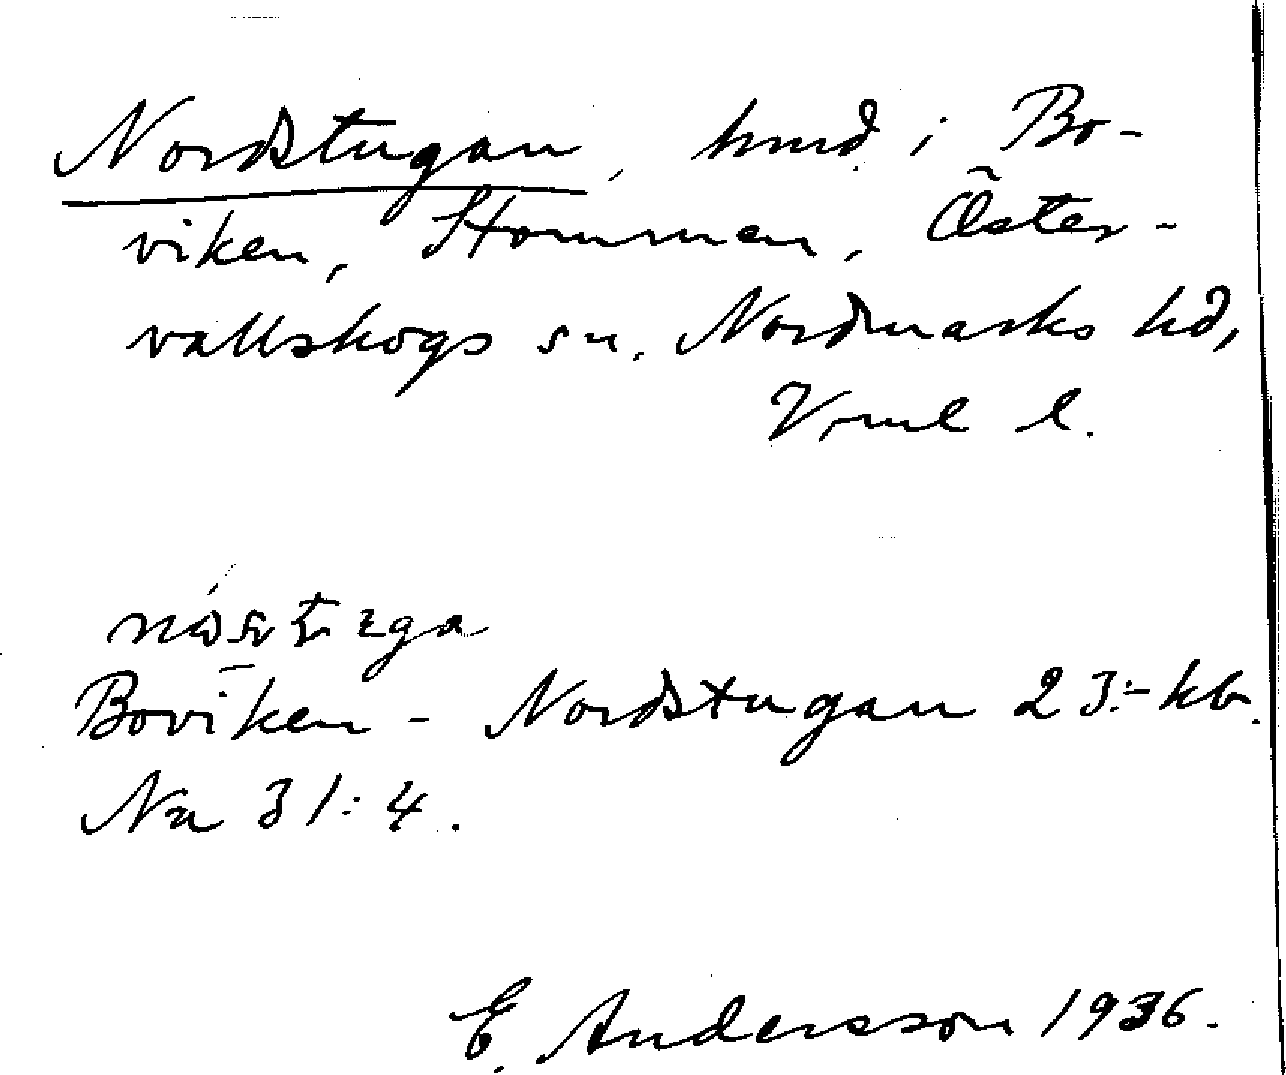 Nordstugan, hmd i Bo-
viken, Stommen, Öster-
vallskogs sn. Nordmarks hd,
Vrml l.
Boviken - Nordstugan 23:- kb.
Na 31:4.
E. Andersson 1936.